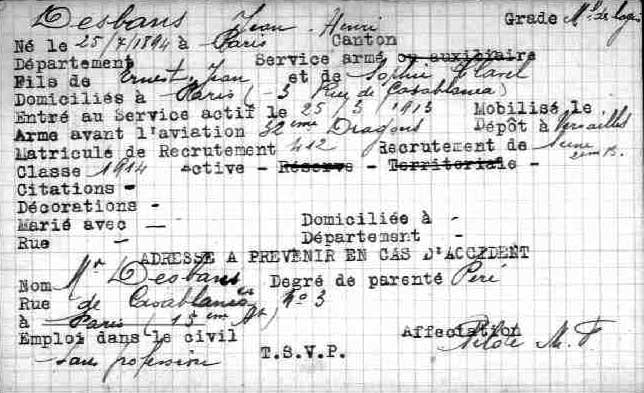 Desbans Jean Henri Grade Mal des logis
Né le 25/7/1894 à Paris Canton
Département Service armé ou auxiliaire
Fils de Ernest Jean et de Sophie Clavel
Domiciliés à Paris (3 Rue de Casablanca)
Entré au Service actif le 25/3/1913 Mobilisé le
Arme avant l'aviation 32eme Dragons Dépôt à Versailles
Matricule de Recrutement 412 Recrutement de Seine
Classe 1914 Active - Réserve - Territoriale -
Citations -
Décorations -
Marié avec - Domiciliée à -
Rue - Département -
ADRESSE A PREVENIR EN CAS D'ACCIDENT
Nom Mr Desbans Degré de parenté Père
Rue de Casablanca No 3
à Paris (15eme Art)
Emploi dans le civil Affectation
Sans profession T.S.V.P. Pilote M. F